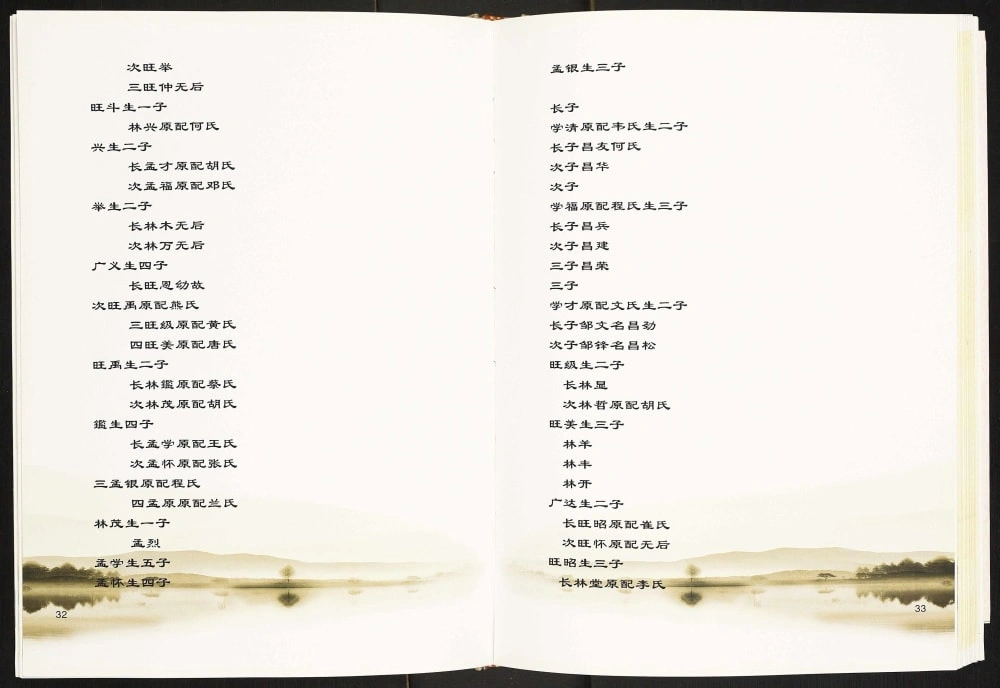 次旺举
三旺仲无后
旺斗生一子
林兴原配何氏
兴生二子
长孟才原配胡氏
次孟福原配邓氏
举生二子
长林木无后
次林万无后
广义生四子
长旺恩幼故
次旺禹原配熊氏
三旺级原配黄氏
四旺美原配唐氏
旺禹生二子
长林鑑原配蔡氏
次林茂原配胡氏
鑑生四子
长孟学原配王氏
次孟怀原配张氏
三孟银原配程氏
四孟原原配兰氏
林茂生一子
孟烈
孟学生五子
孟怀生四子
32
孟银生三子
长子
学清原配韦氏生二子
长子昌友何氏
次子昌华
次子
学福原配程氏生三子
长子昌兵
次子昌建
三子昌荣
三子
学才原配文氏生二子
长子邹文名昌劲
次子邹锋名昌松
旺级生二子
长林显
次林哲原配胡氏
旺美生三子
林羊
林丰
林开
广达生二子
长旺昭原配崔氏
次旺怀原配无后
旺昭生三子
长林堂原配李氏
33